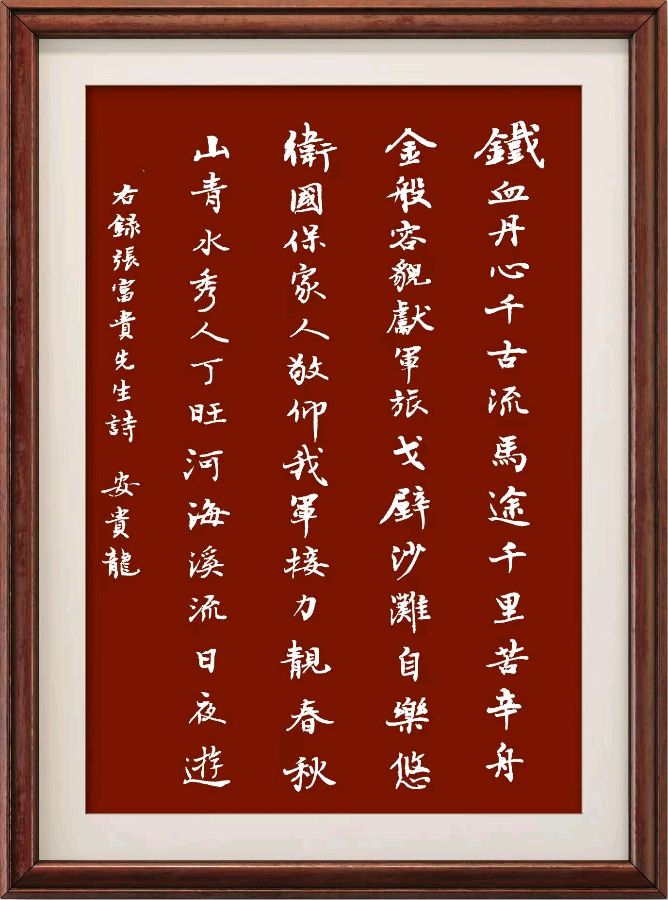 鐵血丹心千古流馬途千里苦辛舟
金般容貌獻軍旅戈壁沙灘自樂悠
衛國保家人敬仰我軍接力靚春秋
山青水秀人丁旺河海溪流日夜遊
右錄張富貴先生詩 安貴龍